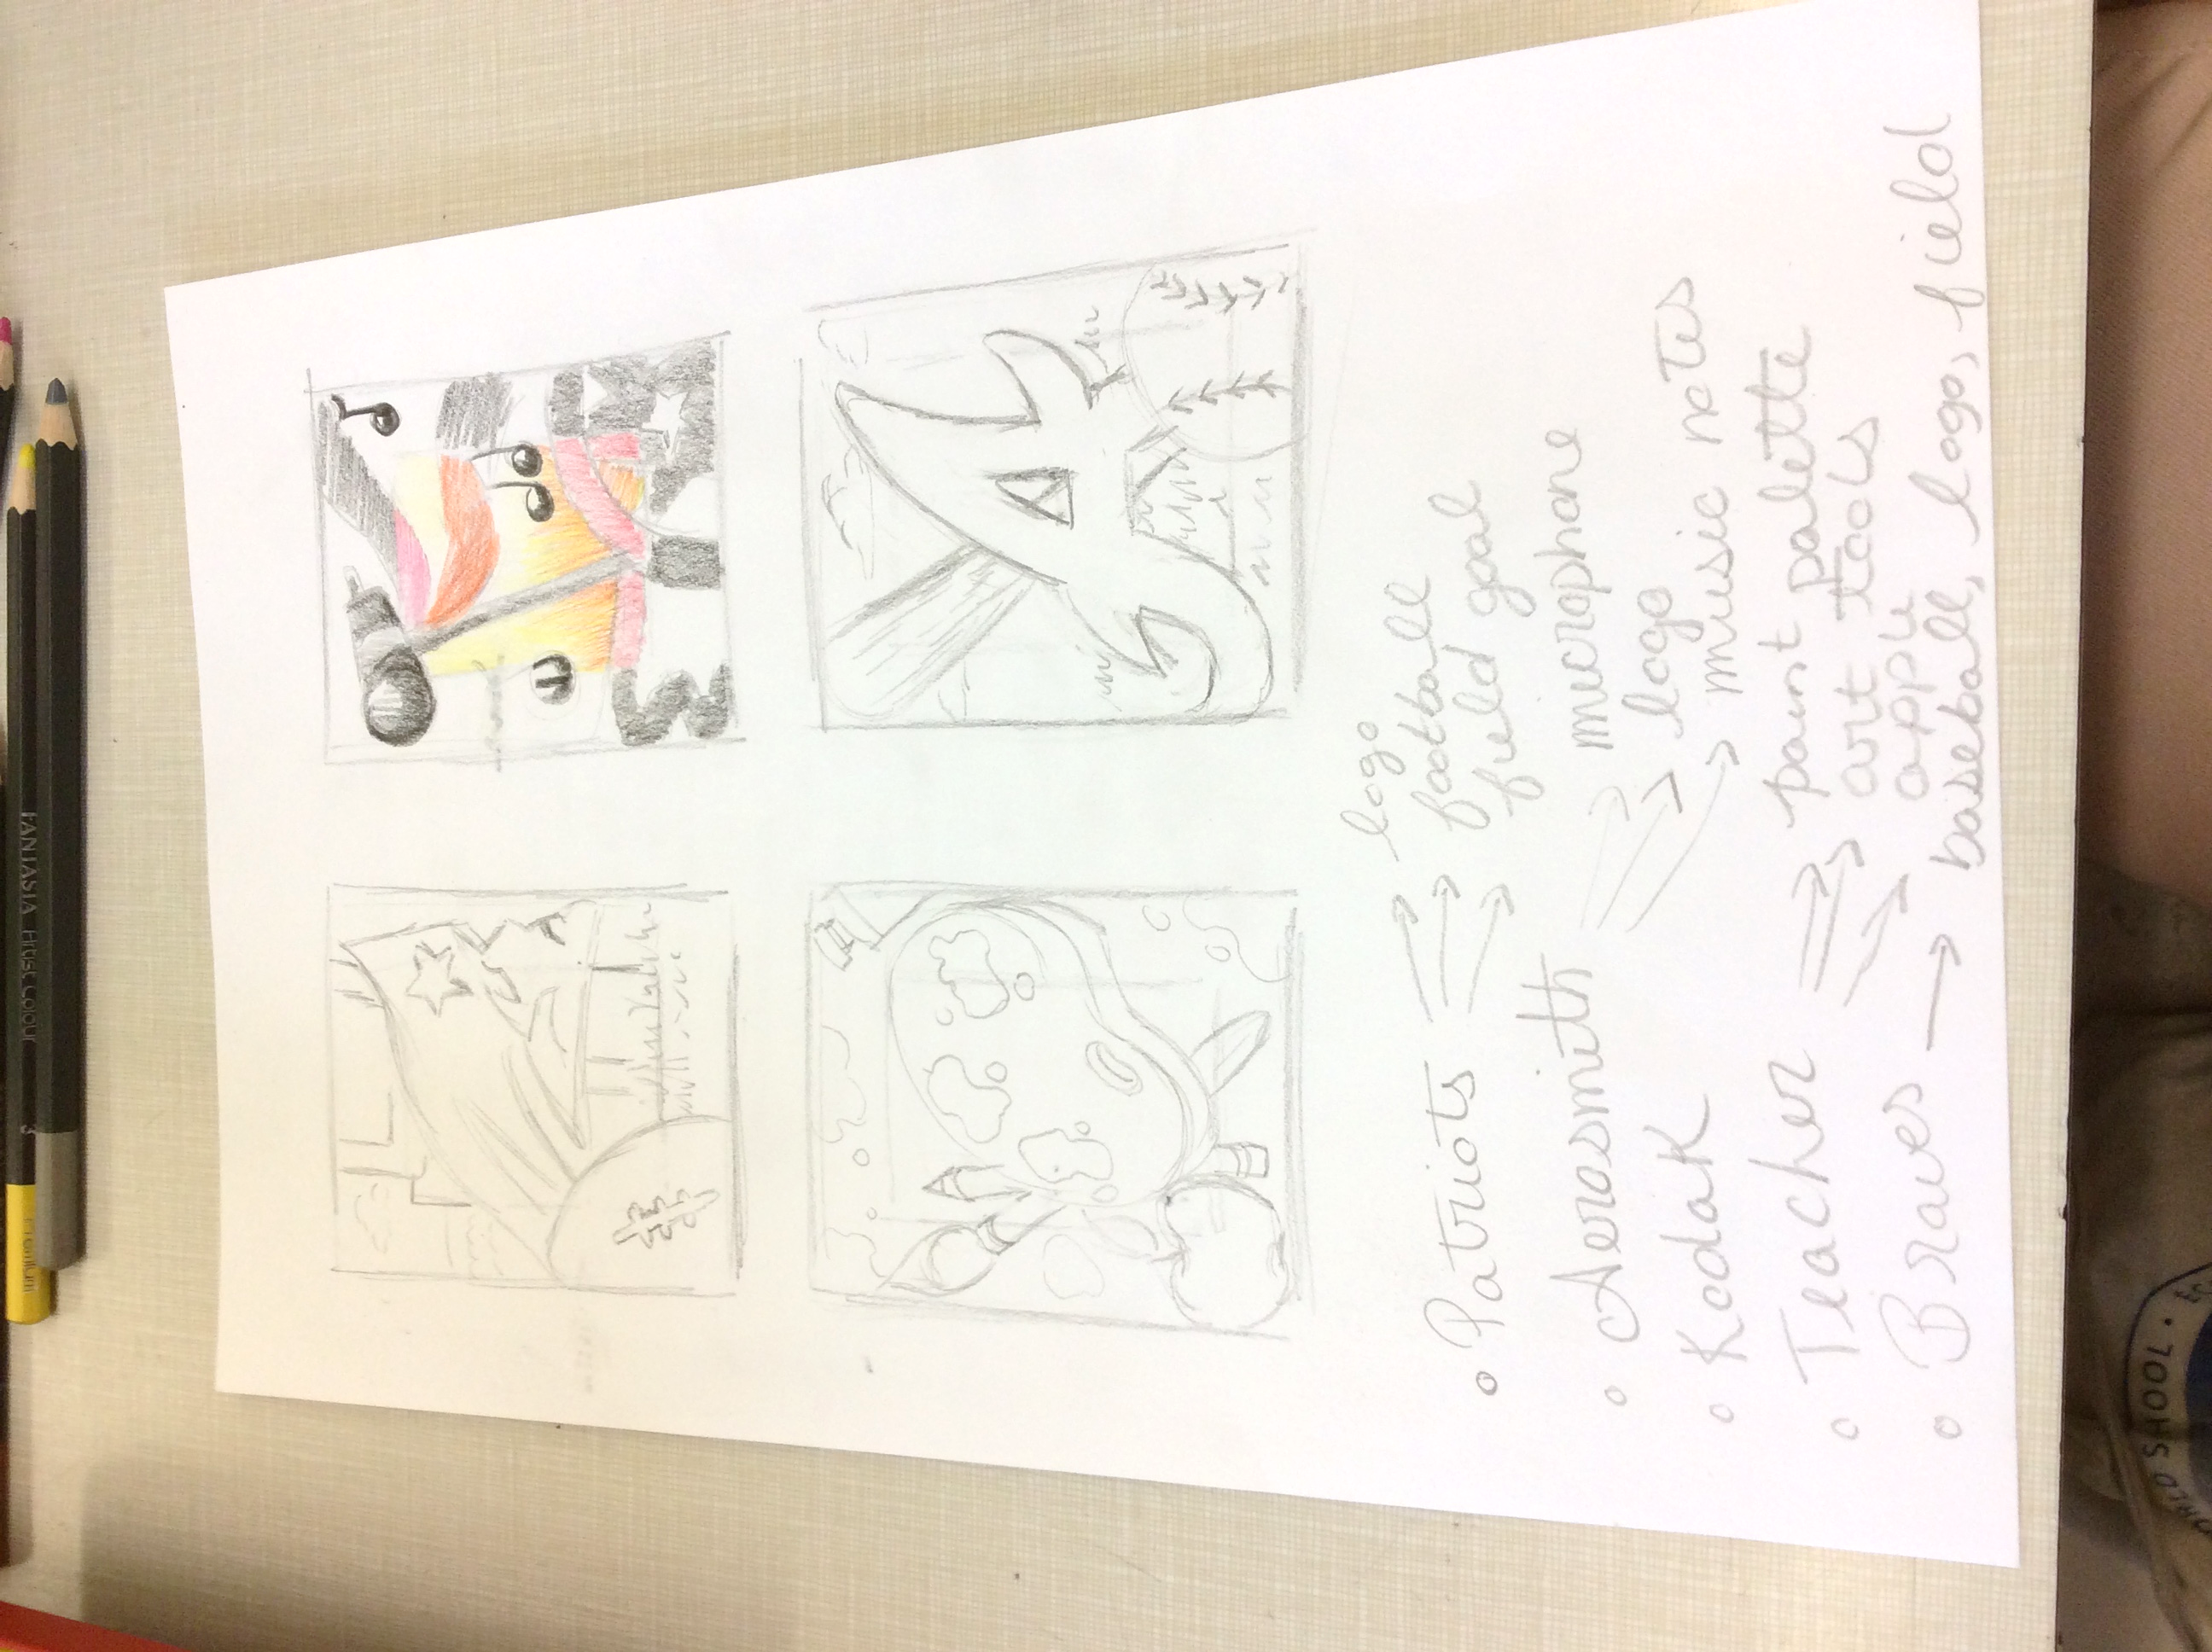 • Patriots → logo
→ football
→ field goal
• Aerosmith → microphone
→ logo
• Kodak → music notes
• Teacher → paint palette
→ art tools
→ apple
• Braves → baseball, logo, field
FANTASIA
Premium
3
SHOOL •